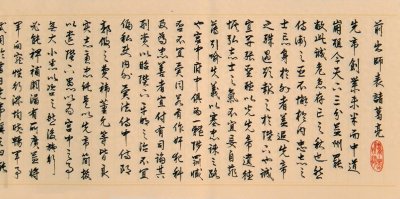 前出師表諸葛亮
先帝創業未半而中道
崩殂今天下三分益州罷
敝此誠危急存亡之秋也然
侍衛之臣不懈於內忠志之
士忘身於外者蓋追先帝
之殊遇欲報之於陛下也誠
宜開張聖聽以光先帝遺德
恢弘志士之氣不宜妄自菲
薄引喻失義以塞忠諫之路
也宮中府中俱為一體陟罰臧
否不宜異同若有作奸犯科
及為忠善者宜付有司論其
刑賞以昭陛下平明之治不宜
偏私使內外異法侍中侍郎
郭攸之費禕董允等此皆良
實志慮忠純是以先帝簡拔
以遺陛下愚以為宮中之事
無大小悉以咨之然後施行
必能裨補闕漏有所廣益將
軍向寵性行淑均曉暢軍事